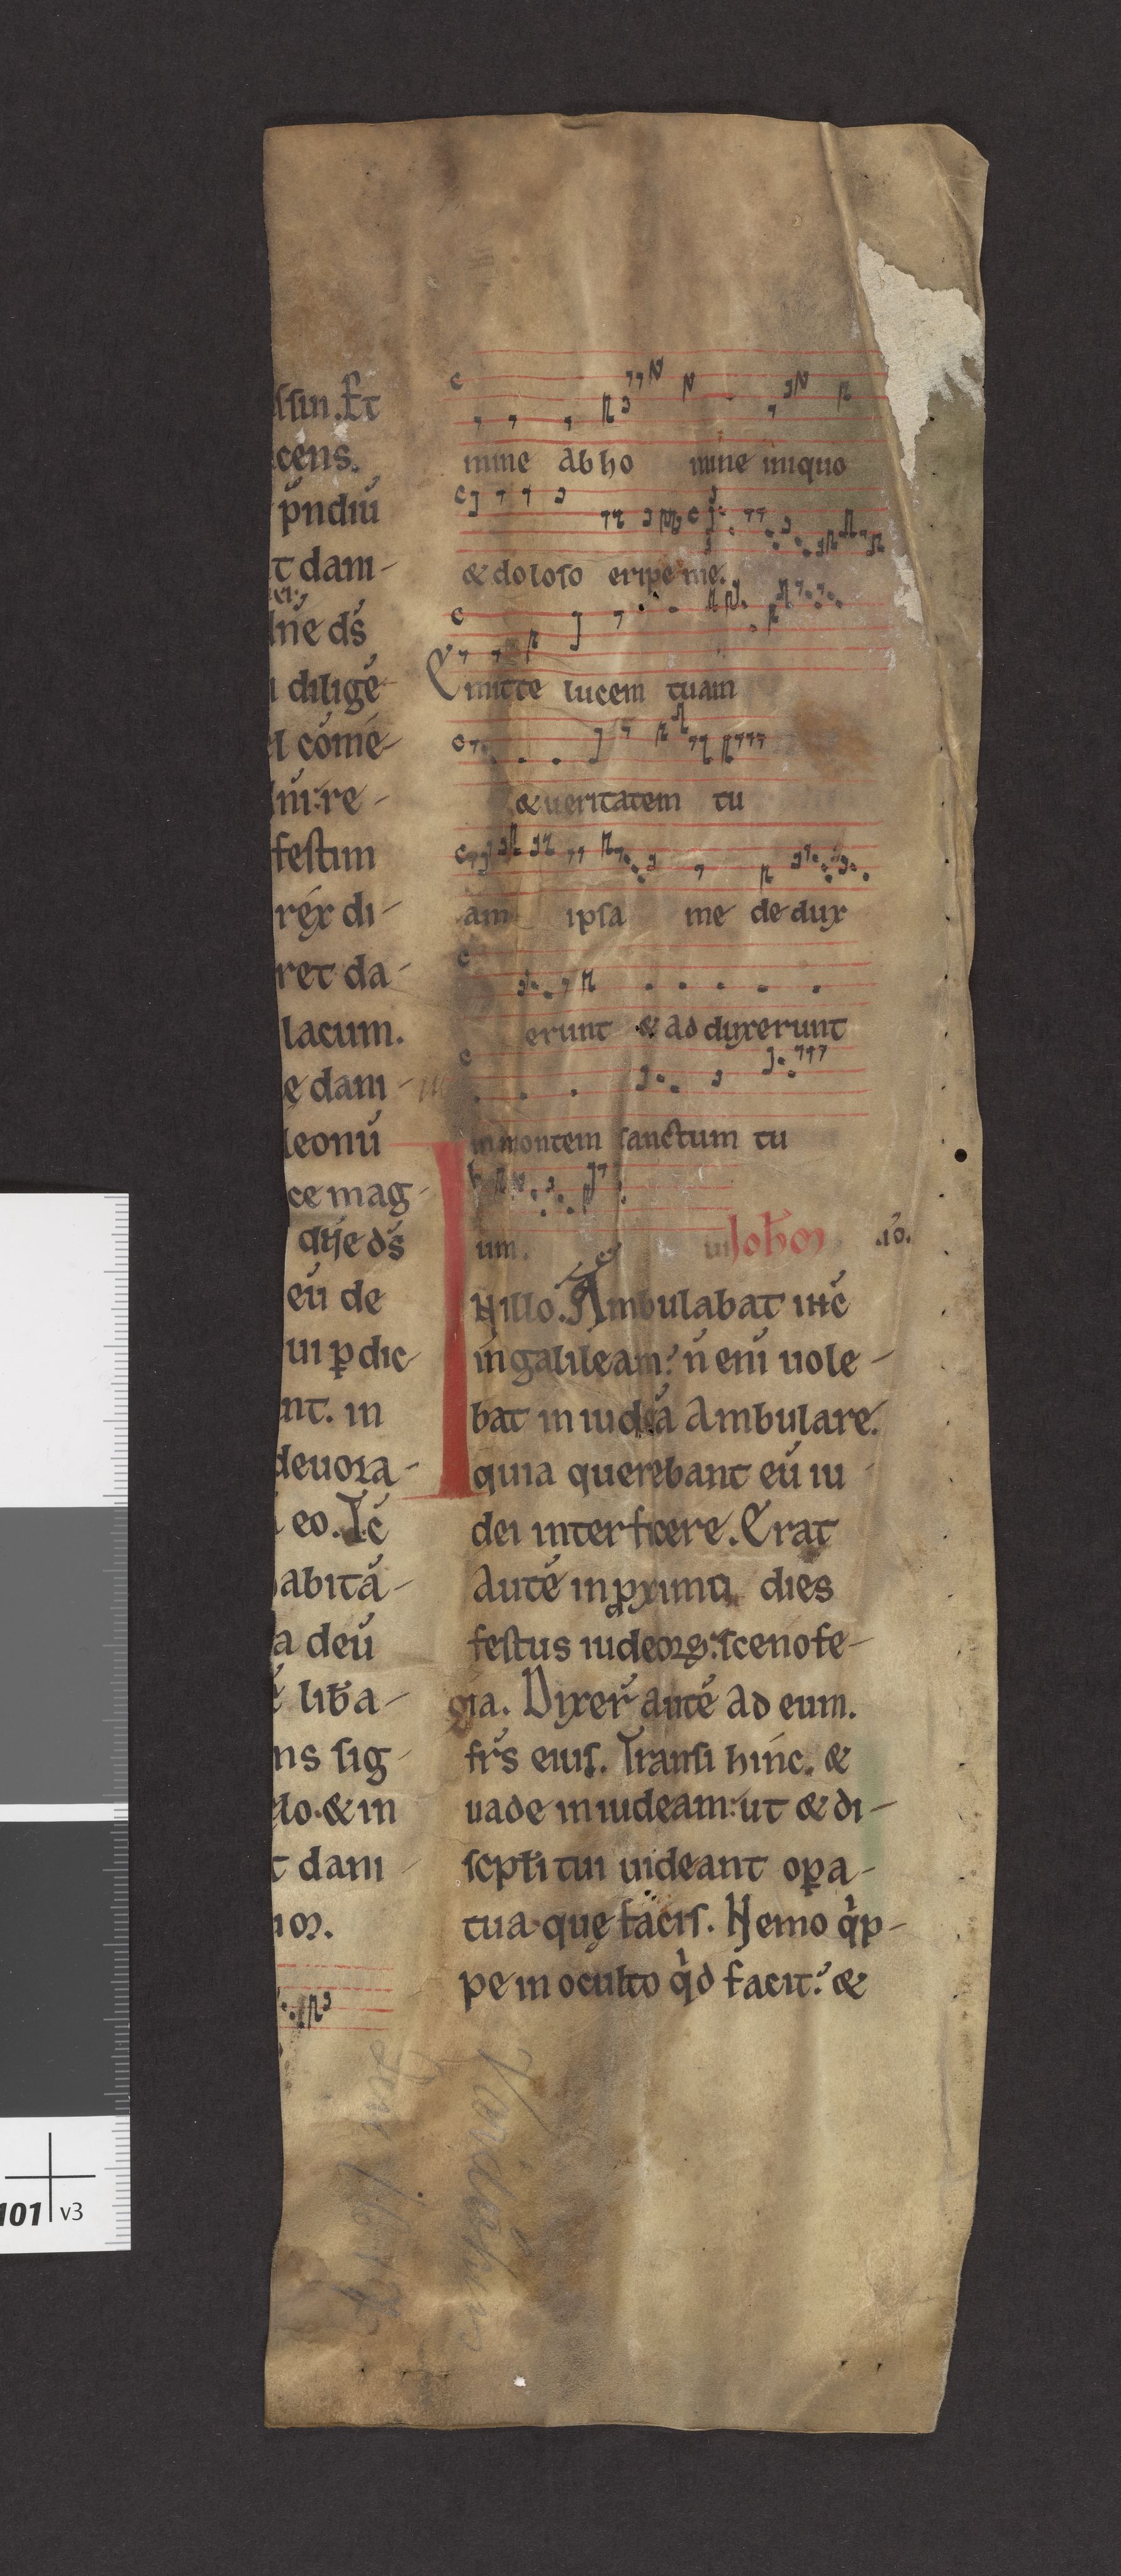 ssin. Et
cens.
p̄ndiū
t dani-
dn̄e ds̄
diligē-
el comē-
iui: re-
festim
réx di-
ret da-
lacum.
ę dani-
leonū
ce mag-
ds̄
eū de
ui p̱dic-
nt. in
deuora-
eo. Ic̄
abitā-
a deū
lib̄a-
ns sig-
elo. & in
t dani
mine ab ho mine iniquo
& doloso eripe me.
Emitte lucem tuam
& ueritatem tu
am ipsa me de dux
erunt & ad duxerunt
in montem sanctum tu
um. Ioh̄m .io.
IN illo. Ambulabat ihc̄
in galileam: n̄ eni uole-
bat in iudeā ambulare.
quia querebant eū iu
dei interficere. Erat
autē in p̱ximo dies
festus iudeoꝝ: scenofe-
gia. Dixer̄ autē ad eum.
fr̄s eius. Transi hinc. &
uade in iudeam: ut & di-
scipl̄i tui uideant op̱a-
tua. quę facis. Nemo q̇p-
pe in oculto q̇d facit: &